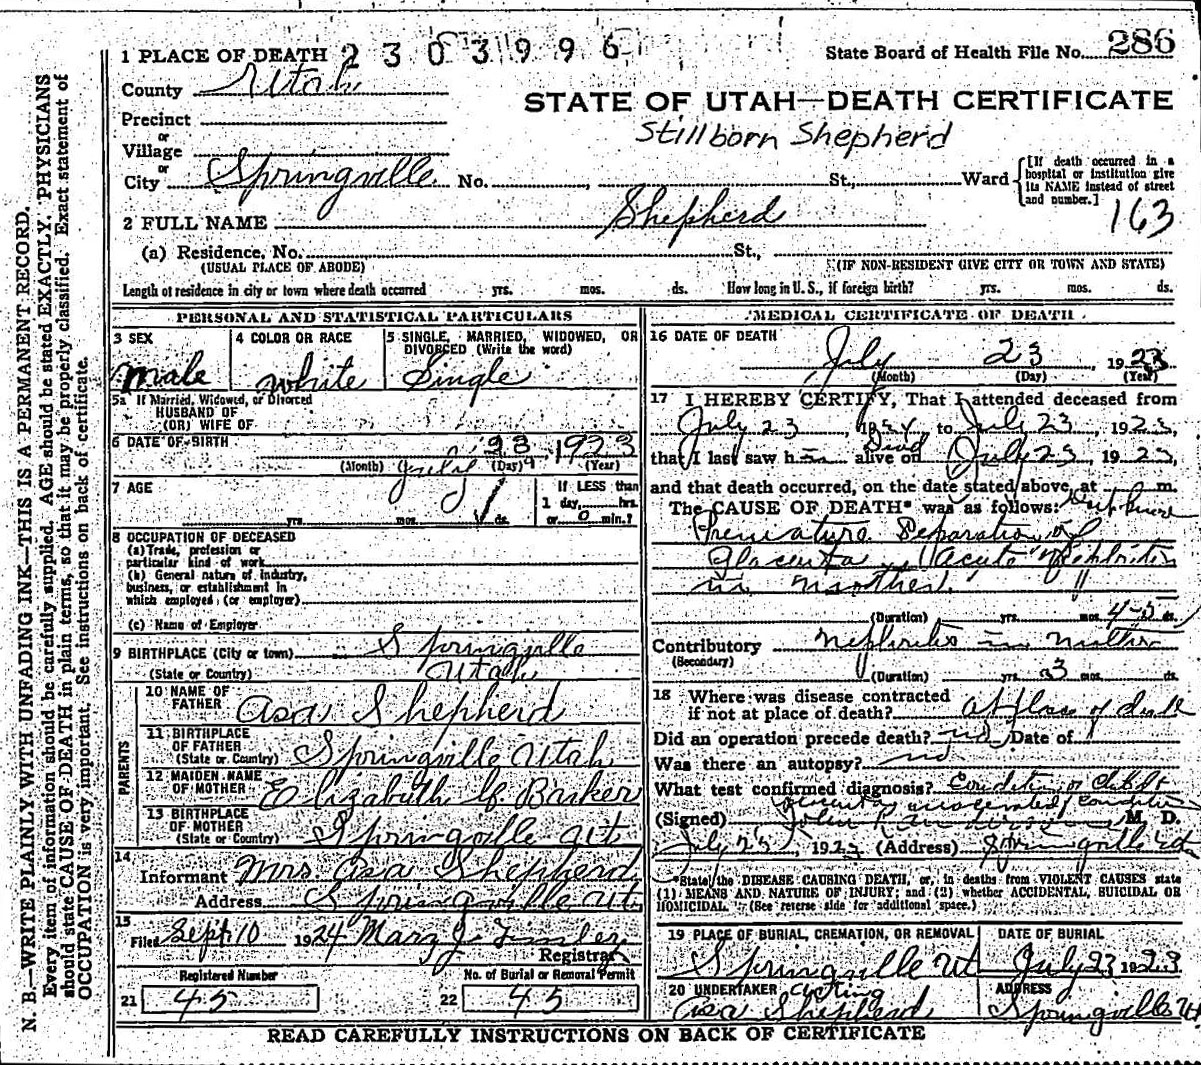 1 PLACE OF DEATH 2303996
State Board of Health File No. 286
County Utah
STATE OF UTAH—DEATH CERTIFICATE
Precinct
Stillborn Shepherd
or
Village
or
City Springville No. , St., Ward
[If death occurred in a hospital or institution give its NAME instead of street and number.]
163
2 FULL NAME Shepherd
(a) Residence, No. St.,
(USUAL PLACE OF ABODE) (IF NON-RESIDENT GIVE CITY OR TOWN AND STATE)
Length of residence in city or town where death occurred yrs. mos. ds. How long in U. S., if foreign birth? yrs. mos. ds.
PERSONAL AND STATISTICAL PARTICULARS
3 SEX 4 COLOR OR RACE 5 SINGLE, MARRIED, WIDOWED, OR DIVORCED (Write the word)
male white Single
5a If Married, Widowed, or Divorced
HUSBAND OF
(OR) WIFE OF
6 DATE OF BIRTH 23 1923
(Month) July (Day) (Year)
7 AGE If LESS than
1 day, hrs.
yrs. mos. ds. or 0 min.?
8 OCCUPATION OF DECEASED
(a) Trade, profession or
particular kind of work
(b) General nature of industry,
business, or establishment in
which employed (or employer)
(c) Name of Employer
9 BIRTHPLACE (City or town) Springville
(State or Country) Utah
PARENTS
10 NAME OF
FATHER Asa Shepherd
11 BIRTHPLACE
OF FATHER
(State or Country) Springville Utah
12 MAIDEN NAME
OF MOTHER Elizabeth Barker
13 BIRTHPLACE
OF MOTHER
(State or Country) Springville Ut
14
Informant Mrs. Asa Shepherd
Address Springville Ut.
15
Filed Sept 10 1924 Mary J.
Registrar
Registered Number No. of Burial or Removal Permit
21 45 22 45
MEDICAL CERTIFICATE OF DEATH
16 DATE OF DEATH
July 23, 1923
(Month) (Day) (Year)
17 I HEREBY CERTIFY, That I attended deceased from
July 23, to July 23, 1923,
that I last saw h alive on July 23, 1923,
Dead
and that death occurred, on the date stated above, at m.
The CAUSE OF DEATH* was as follows:
Premature Separation of
Placenta Acute Nephritis
in mother.
(Duration) yrs. mos. 4-5 ds.
Contributory Nephritis in mother
(Secondary)
(Duration) yrs. 3 mos. ds.
18 Where was disease contracted
if not at place of death? at place of death
Did an operation precede death? no Date of
Was there an autopsy? no
What test confirmed diagnosis? Condition of
(Signed) John M. D.
July 23, 1923 (Address) Springville Ut
*State the DISEASE CAUSING DEATH, or, in deaths from VIOLENT CAUSES state
(1) MEANS AND NATURE OF INJURY; and (2) whether ACCIDENTAL, SUICIDAL OR
HOMICIDAL. (See reverse side for additional space.)
19 PLACE OF BURIAL, CREMATION, OR REMOVAL DATE OF BURIAL
Springville Ut. July 23 1923
20 UNDERTAKER acting ADDRESS
Asa Shepherd Springville Ut
READ CAREFULLY INSTRUCTIONS ON BACK OF CERTIFICATE
N. B.—WRITE PLAINLY WITH UNFADING INK—THIS IS A PERMANENT RECORD.
Every item of information should be carefully supplied. AGE should be stated EXACTLY. PHYSICIANS
should state CAUSE OF DEATH in plain terms, so that it may be properly classified. Exact statement of
OCCUPATION is very important. See instructions on back of certificate.